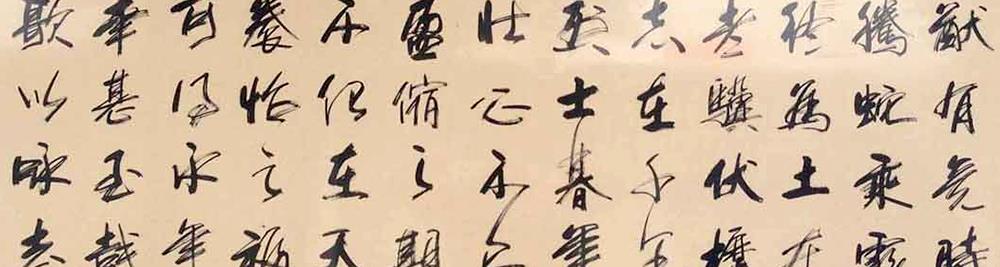 猷有竟時
騰蛇乘霧
終為土灰
老驥伏櫪
志在千里
烈士暮年
壯心不已
盈縮之期
不但在天
養怡之福
可得永年
幸甚至哉
歌以咏志